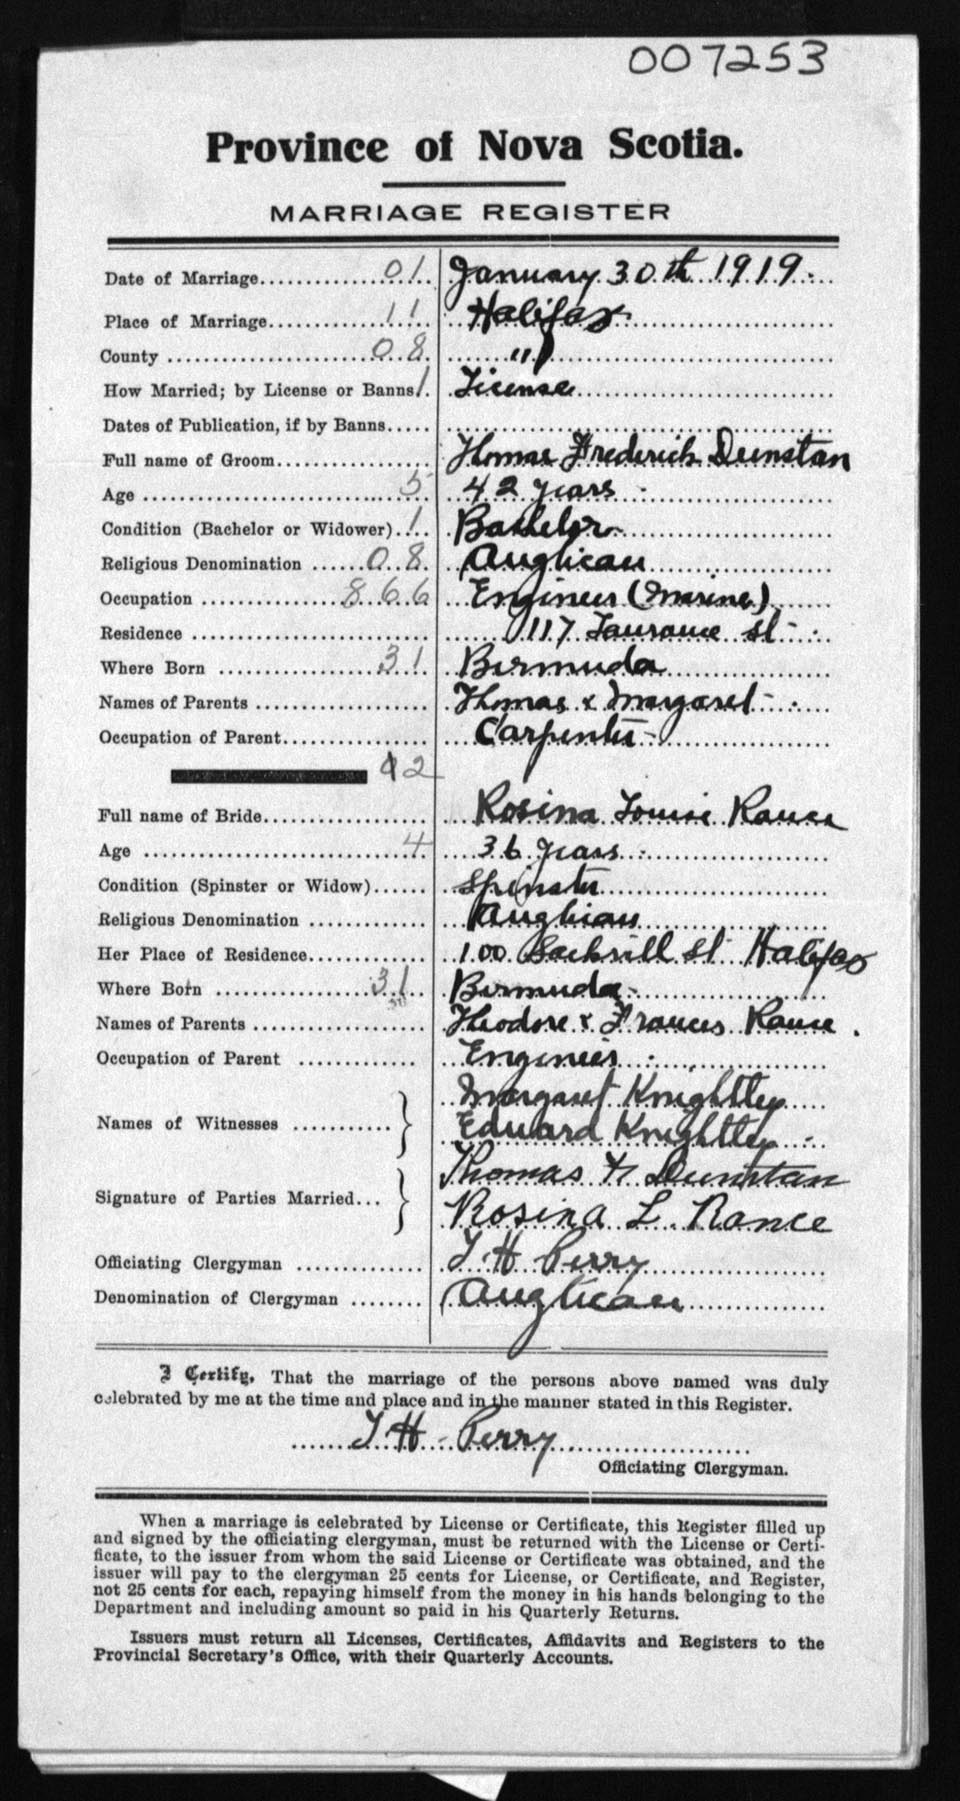 007253
Province of Nova Scotia.
MARRIAGE REGISTER
Date of Marriage 01 January 30th 1919.
Place of Marriage 11 Halifax
County 08 "
How Married; by License or Banns 1 License
Dates of Publication, if by Banns
Full name of Groom Thomas Frederick Dunstan
Age 5 42 years
Condition (Bachelor or Widower) 1 Bachelor
Religious Denomination 08 Anglican
Occupation 866 Engineer (Marine)
Residence 117 st
Where Born 31 Bermuda
Names of Parents Thomas & Margaret
Occupation of Parent Carpenter
02
Full name of Bride Rosina Louise Rance
Age 4 36 years
Condition (Spinster or Widow) Spinster
Religious Denomination Anglican
Her Place of Residence 100 Sackvill St Halifax
Where Born 31 Bermuda
Names of Parents Theodore & Frances Rance.
Occupation of Parent Engineer
Margaret Knightley
Names of Witnesses
Edward Knightley
Thomas F. Dunstan
Signature of Parties Married...
Rosina L. Rance
Officiating Clergyman T H Perry
Denomination of Clergyman Anglican
I Certify, That the marriage of the persons above named was duly
celebrated by me at the time and place and in the manner stated in this Register.
T H Perry
Officiating Clergyman.
When a marriage is celebrated by License or Certificate, this Register filled up
and signed by the officiating clergyman, must be returned with the License or Certi-
ficate, to the issuer from whom the said License or Certificate was obtained, and the
issuer will pay to the clergyman 25 cents for License, or Certificate, and Register,
not 25 cents for each, repaying himself from the money in his hands belonging to the
Department and including amount so paid in his Quarterly Returns.
Issuers must return all Licenses, Certificates, Affidavits and Registers to the
Provincial Secretary's Office, with their Quarterly Accounts.